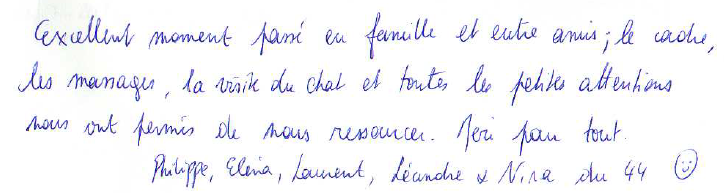 Excellent moment passé en famille et entre amis ; le cadre,
les massages, la visite du chat et toutes les petites attentions
nous ont permis de nous ressourcer. Merci pour tout.
Philippe, Elena, Laurent, Léandre & Nina du 44